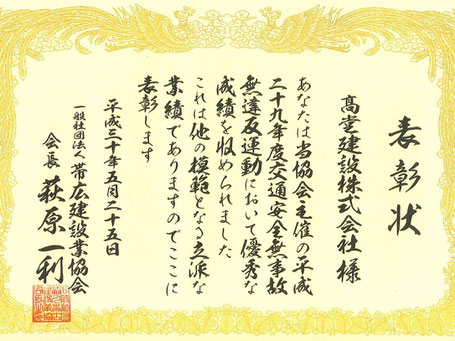 表彰状
髙堂建設株式会社 様
あなたは当協会主催の平成
二十九年度交通安全無事故
無違反運動において優秀な
成績を収められました
これは他の模範となる立派な
業績でありますのでここに
表彰します
平成三十年五月二十五日
一般社団法人 帯広建設業協会
会長 萩原一利